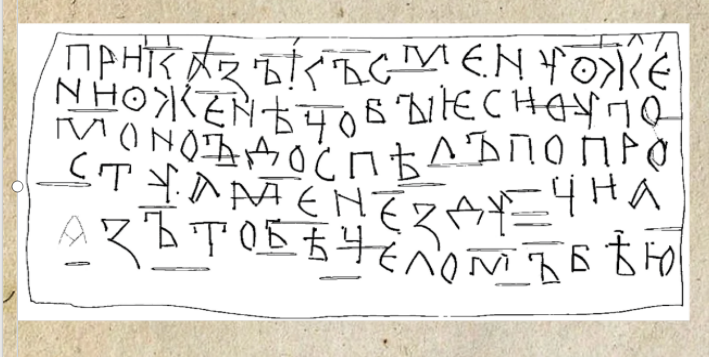 ПРНКАЗЪКЪСМЕНУОЖЕ
ННОЖЕНѢЧОБЪІЕСНОУПО
МОНОЪДОСПѢЛЪПОПРО
СТУАМЕНЕЗДУЧНА
АЗЪТОБѢЧЕЛОМЪБѢЮ